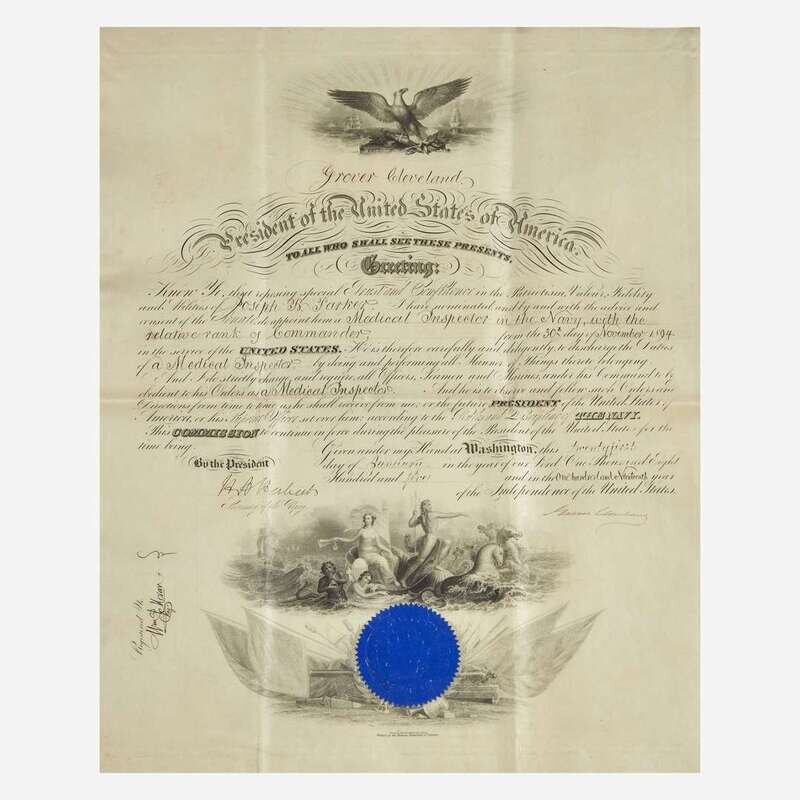 Grover Cleveland,
President of the United States of America.
TO ALL WHO SHALL SEE THESE PRESENTS,
Greeting:
Know Ye, that reposing special Trust and Confidence in the Patriotism, Valour, Fidelity
and Abilities of Joseph B. Parker I have nominated and by and with the advice and
consent of the Senate do appoint him a Medical Inspector in the Navy, with the
relative rank of Commander, from the 30th day of November 1894
in the service of the UNITED STATES. He is therefore carefully and diligently to discharge the Duties
of a Medical Inspector by doing and performing all Manner of Things thereto belonging.
And I do strictly charge and require all Officers, Seamen and Marines under his Command to be
obedient to his Orders as a Medical Inspector And he is to observe and follow such Orders and
Directions from time to time as he shall receive from me or the future PRESIDENT of the United States of
America, or his Superior Officer set over him, according to the Rules and Discipline of THE NAVY.
This COMMISSION to continue in force during the pleasure of the President of the United States for the
time being.
Given under my Hand at Washington, this twenty first
By the President
day of January in the year of our Lord One Thousand Eight
Hundred and five and in the One hundred and nineteenth year
of the Independence of the United States.
Secretary of the Navy
Grover Cleveland